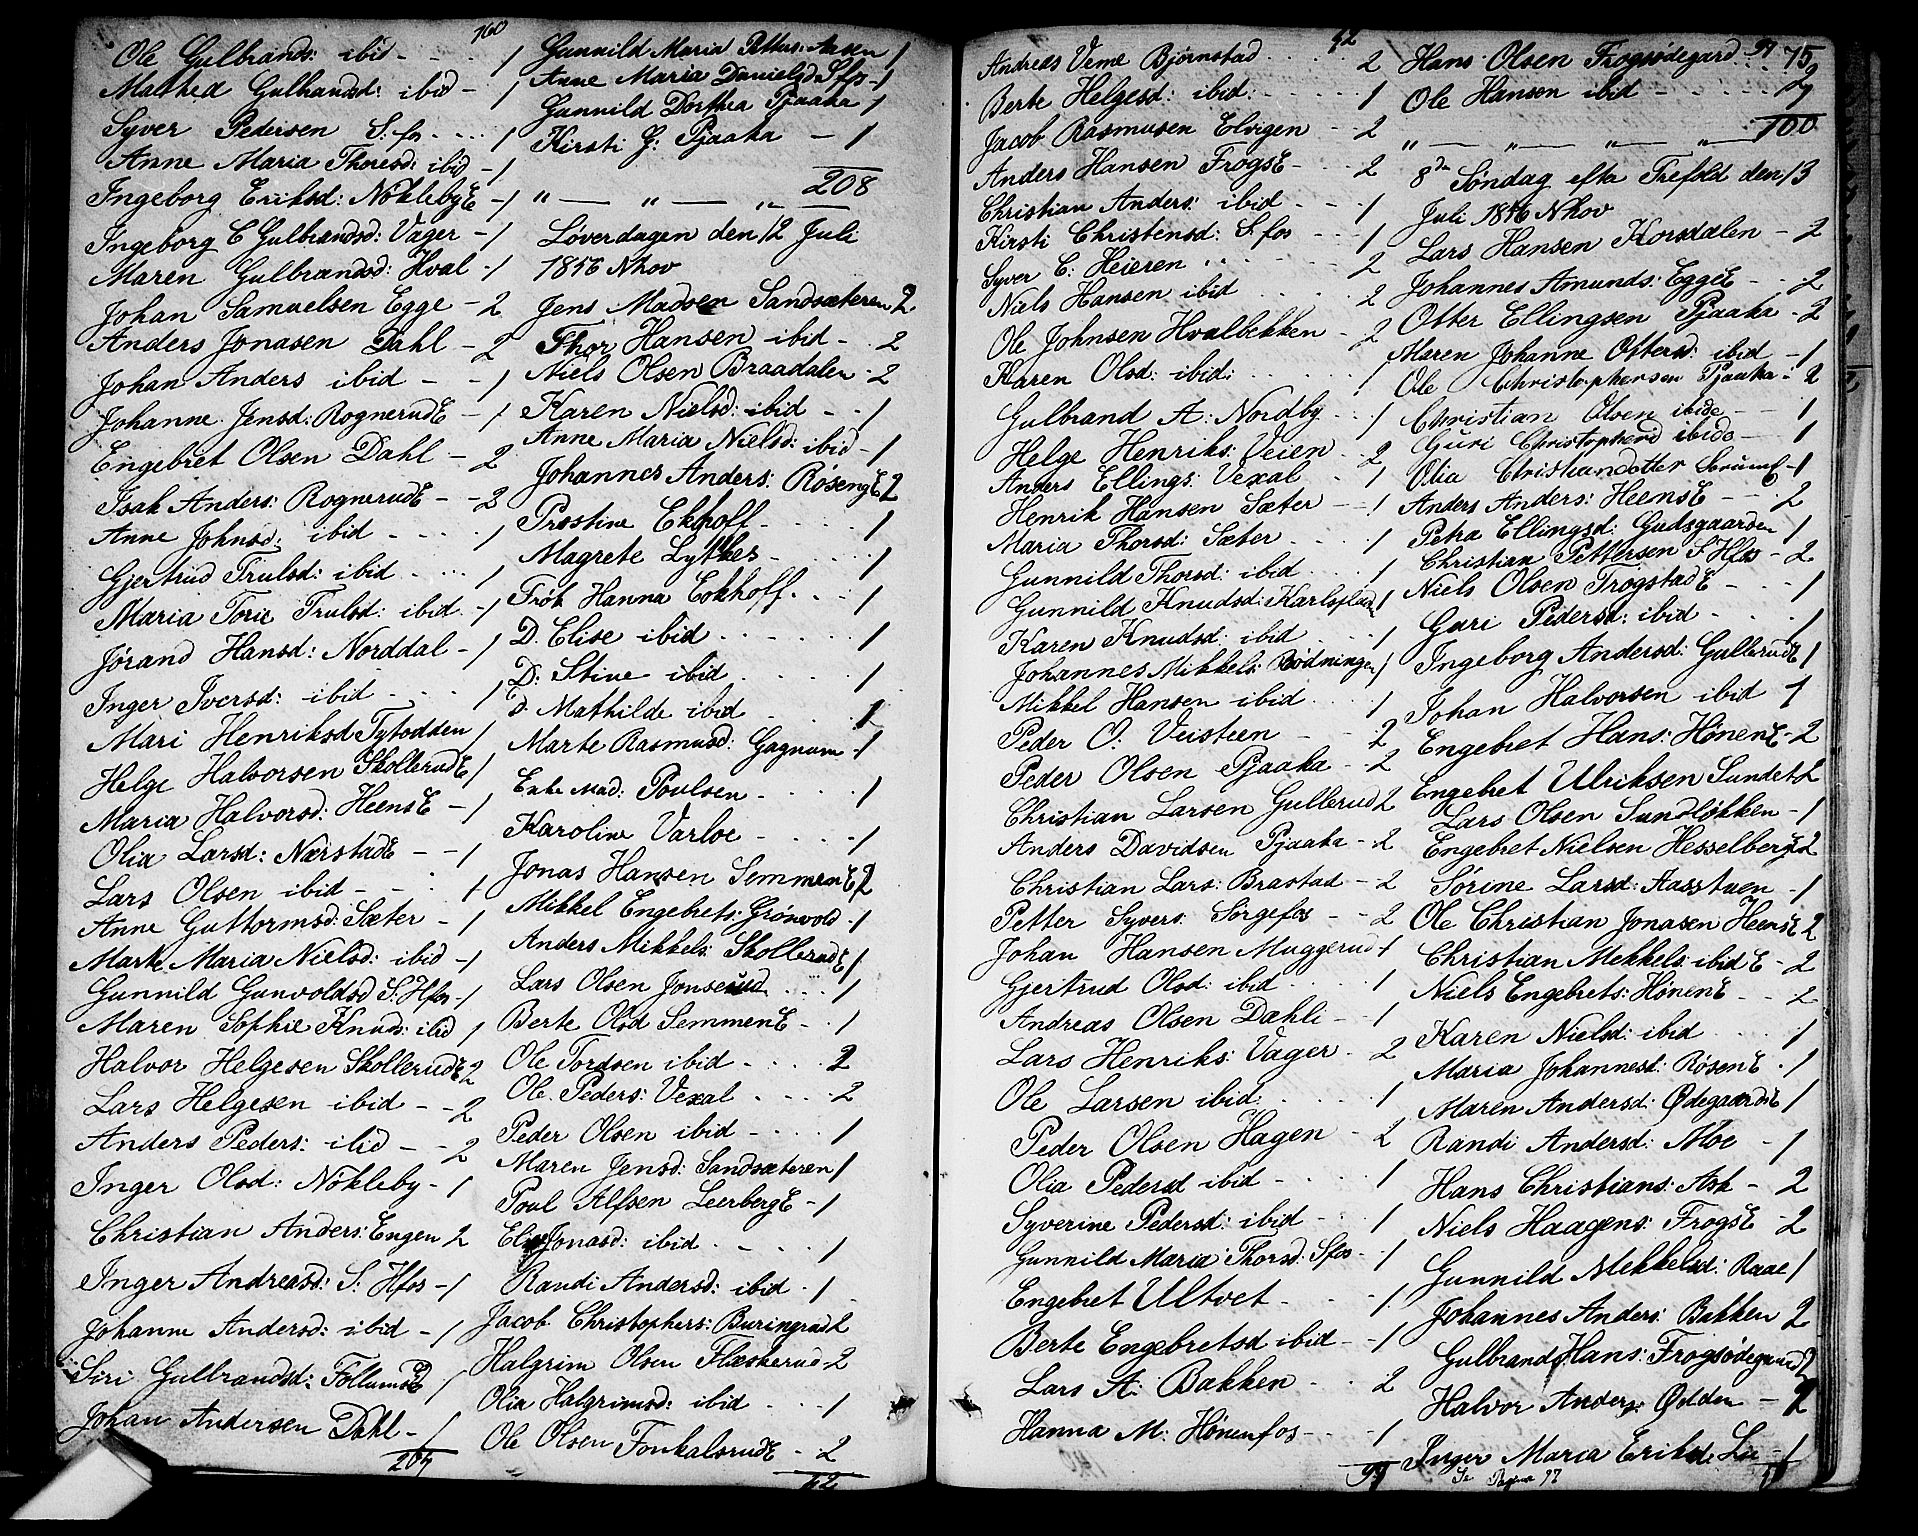 160
Ole Gulbrands: ibid - - - 1
Mathea Gulbrandsd: ibid - 1
Syver Pedersen S:fos - - - 1
Anne Maria Thoresd: ibid - 1
Ingeborg Eriksd: NöklebyE - 1
Ingeborg C Gulbrandsd: Vager - 1
Maren Gulbrandsd: Hval - 1
Johan Samuelsen Egge - 2
Anders Jonasen Dahl - 2
Johan Anders ibid - - 1
Johanne Jensd: RognerudE - 1
Engebret Olsen Dahl - 2
Isak Anders: RognerudE - - 2
Anne Johnsd: ibid - - - 1
Gjertrud Trulsd: ibid - - - 1
Maria Torie Trulsd: ibid - 1
Jørand Hansd: Norddal - 1
Inger Iversd: ibid - - - 1
Mari Henriksd Tytodden 1
Helge Halvorsen SkollerudE 1
Maria Halvorsd: HeensE - 1
Olia Larsd: NærstadE - - 1
Lars Olsen ibid - - - 1
Anne Guttormsd: Sæter - 1
Marte Maria Nielsd: ibid - 1
Gunnild Gunvoldsd S:Hfos - 1
Maren Sophie Knuds: ibid 1
Halvor Helgesen SkollerudE 2
Lars Helgesen ibid - - 2
Anders Peders: ibid - - 2
Inger Olsd: Nökleby - 1
Christian Anders: Engen 2
Inger Andreasd: S: Hfos - 1
Johanne Andersd: ibid - 1
Siri Gulbrandsd: FollumsE 1
Johan Andersen Dahl - 1
207
Gunnild Maria Petters: Aasen 1
Anne Maria Danielsd Sfos - 1
Gunnild Dorthea Pjaaka 1
Kirsti G: Pjaaka - 1
208
" — " — "
Løverdagen den 12 Juli
1856 Nkov
Jens Madsen Sandsæteren 2
Thor Hansen ibid - 2
Niels Olsen Braadalen - 2
Karen Nielsd: ibid - - 1
Anne Maria Nielsd: ibid - 1
Johannes Anders: RøsengE 2
Præstine Ekhoff - - - 1
Magrete Lytkes - - - 1
Frök Hanna Eckhoff - - - 1
D. Elise ibid - - - 1
D: Stine ibid - - - 1
D. Mathilde ibid - - - 1
Marte Rasmusd: Gagnum - 1
Enke Mad: Poulsen - - - 1
Karoline Varloe - - - 1
Jonas Hansen SemmenE 2
Mikkel Engebrets: Grönvold - 1
Anders Mikkels: SkollerudE 1
Lars Olsen Jonserud - - - 1
Berte Olsd SemmenE - - 1
Ole Tordsen ibid - - - 2
Ole Peders: Vexal - - - 2
Peder Olsen ibid - - - 1
Maren Jensd: Sandsæteren 1
Poul Alfsen LeerbergE - 1
Elise Jonasd: ibid - - - 1
Randi Andersd: ibid - 1
Jacob Christophers: Buringrud 2
Halgrim Olsen Flæskerud - 2
Olia Halgrimsd: ibid - - - 1
Ole Olsen FonkalsrudE - 2
42
42
Andreas Veme Bjørnstad - - - 2
Berte Helgesd: ibid: - - - 1
Jacob Rasmusen Elvigen - - 2
Anders Hansen FrogsE - - - 2
Christian Anders: ibid - - - 1
Kirsti Christensd: S:fos - - - 1
Syver C: Heieren - - - 2
Niels Hansen ibid - - - 2
Ole Johnsen Hvalbekken - - 2
Karen Olsd: ibid: - - - 1
Gulbrand A: Nordby - - - 1
Helge Henriks: Veien - - 2
Anders Ellings: Vexal - 1
Henrik Hansen Sæter - - 1
Maria Thorsd: Sæter - - - 1
Gunnild Thorsd: ibid - - - 1
Gunnild Knudsd: Karlsplads 1
Karen Knudsd: ibid - - - 1
Johannes Mikkels: Bödningen 1
Mikkel Hansen ibid - - - 1
Peder O: Veisteen - - - 2
Peder Olsen Pjaaka - - 2
Christian Larsen Gullerud 2
Anders Davidsen Pjaaka - 2
Christian Lars: Brastad - 2
Petter Syvers: Sørgefos - - 2
Johan Hansen Muggerud - 1
Gjertrud Olsd: ibid - - - 1
Andreas Olsen Dæhli - - 1
Lars Henriks: Vager - 2
Ole Larsen ibid - - - 1
Peder Olsen Hagen - 2
Olia Pedersd ibid - - - 1
Syverine Pedersd: ibid - - - 1
Gunnild Maria Thorsd: Sfos - - 1
Engebret Ultvet - - - 1
Berte Engebretsd ibid - - 1
Lars A: Bakken - - - 2
Hanna M: Hønenfos - - - 1
99
Hans Olsen Frogsødegard 99 75
Ole Hansen ibid - - - 2
100
" — " — " — " —
8de Søndag efter Trefold den 13
Juli 1856 Nkov
Lars Hansen Korsdalen - 2
Johannes Amunds: EggeE - - - 2
Otter Ellingsen Pjaaka - 2
Maren Johanne Ottersd: ibid - 1
Ole Christophersen Pjaaka - 2
Christian Olsen ibide - 1
Guri Christophersd ibide - 1
Olia Christiansdatter - 1
Anders Anders: HeensE - - - 2
Petra Ellingsd: Gudsgaarden 1
Christian Pettersen S Hfos - 2
Niels Olsen TrogstadE - - 1
Guri Pedersd: ibid - - - 1
Ingeborg Andersd: GullerudE 1
Johan Halvorsen ibid 1
Engebret Hans: HønenE - 2
Engebret Ulriksen Sundet 2
Lars Olsen Sundløkken - 1
Engebret Nielsen HesselbergE 2
Sørine Larsd: Aasstuen - 1
Ole Christian Jonasen HeensE 2
Christian Mekkels: ibid E - 2
Niels Engebrets: HønenE - - 2
Karen Nielsd: ibid - - - 1
Maria Johannesd: RøsenE - 1
Maren Andersd: ØdegaardsE 1
Randi Andersd: Moe - 1
Hans Christians: Ask - 2
Niels Haagens: FrogsE - 2
Gunnild Mekkelsd: Raae 1
Johannes Anders: Bakken 2
Gulbrand Hans: Frogsødegaard 2
Halvor Anders: Odden - 2
Inger Maria Eriksd: Lie - 1
Se Pagina 97